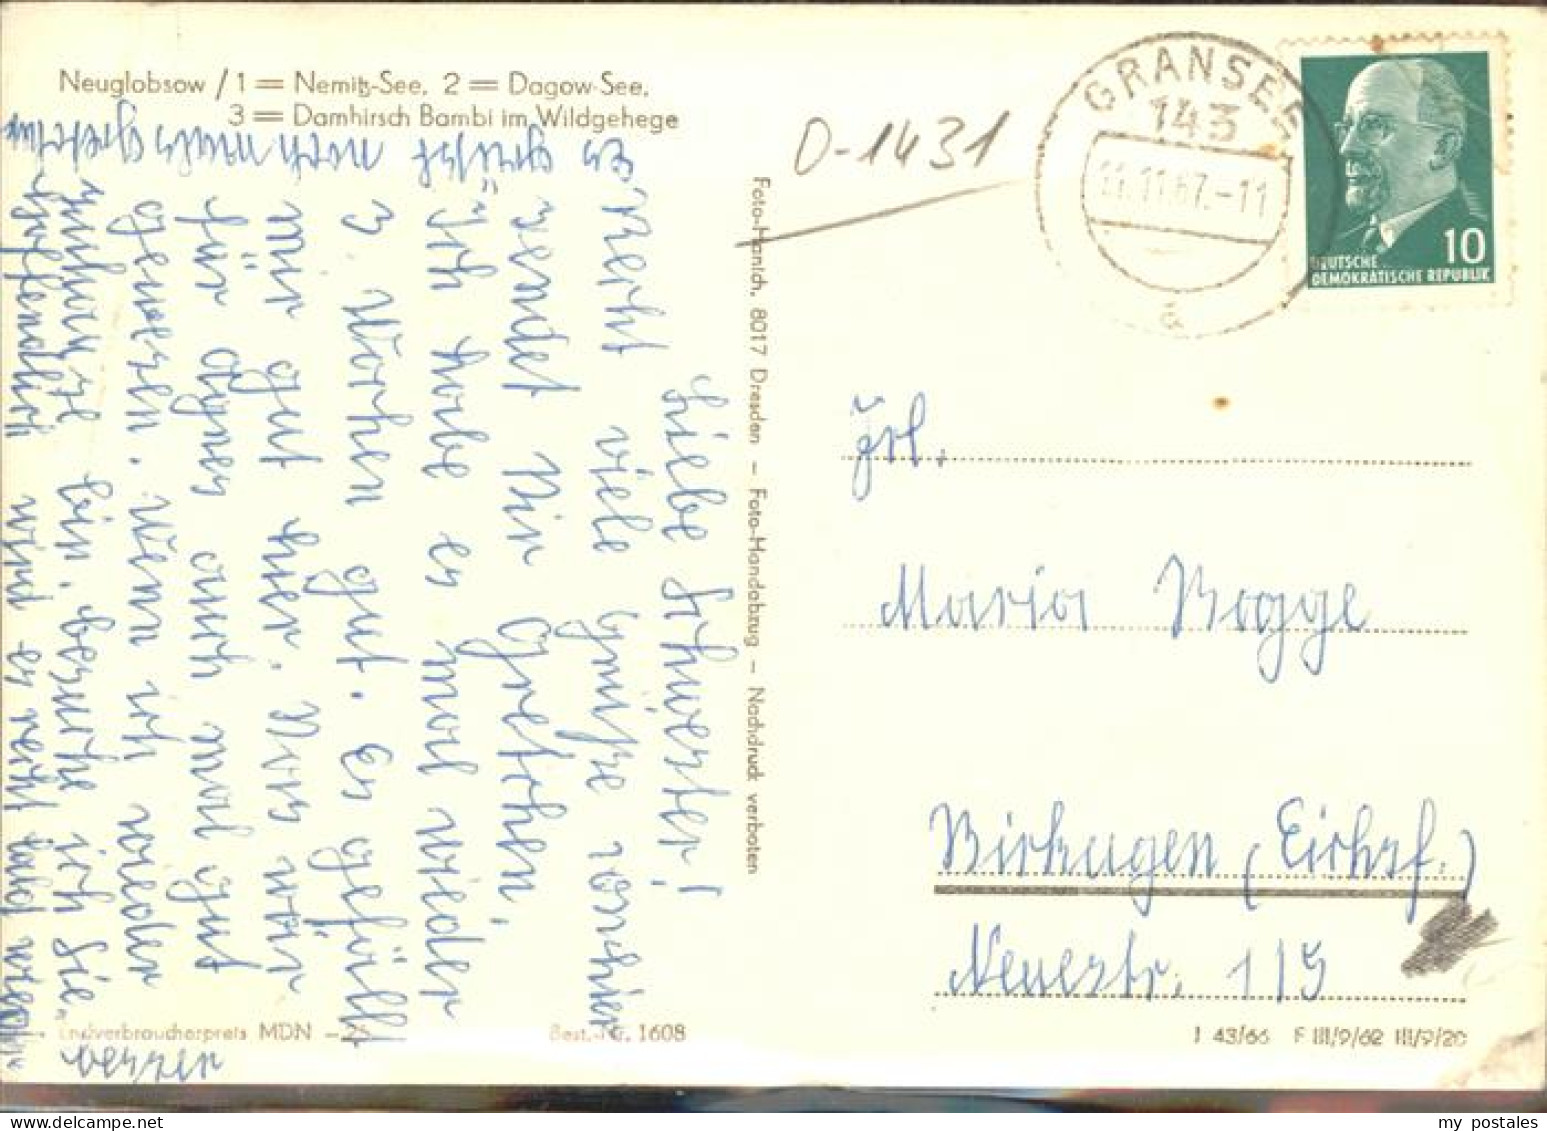 Neuglobsow / 1 = Nemitz-See, 2 = Dagow-See,
3 = Damhirsch Bambi im Wildgehege
Liebe Schwester!
Recht viele Grüße von hier
sendet Dir Gretchen,
Ich habe es mal wieder
3. Wochen gut. Es gefällt
mir gut hier. Das war
für Agnes auch mal gut
gewesen. Wenn ich wieder
zuhause bin, besuche ich Sie.
hoffendlich wird es recht bald wieder
besser
Es grüßt nochmals Gretchen
Foto-Hanich, 8017 Dresden – Foto-Handabzug – Nachdruck verboten
Endverbraucherpreis MDN –.25
Best.-Nr. 1608
O-1431
GRANSEE
143
11.11.67.-11
a
10
DEUTSCHE
DEMOKRATISCHE REPUBLIK
Frl.
Maria Rogge
Birkugen (Eichsf.)
Neuestr. 115
J 43/66 F III/9/62 III/9/20
my postales